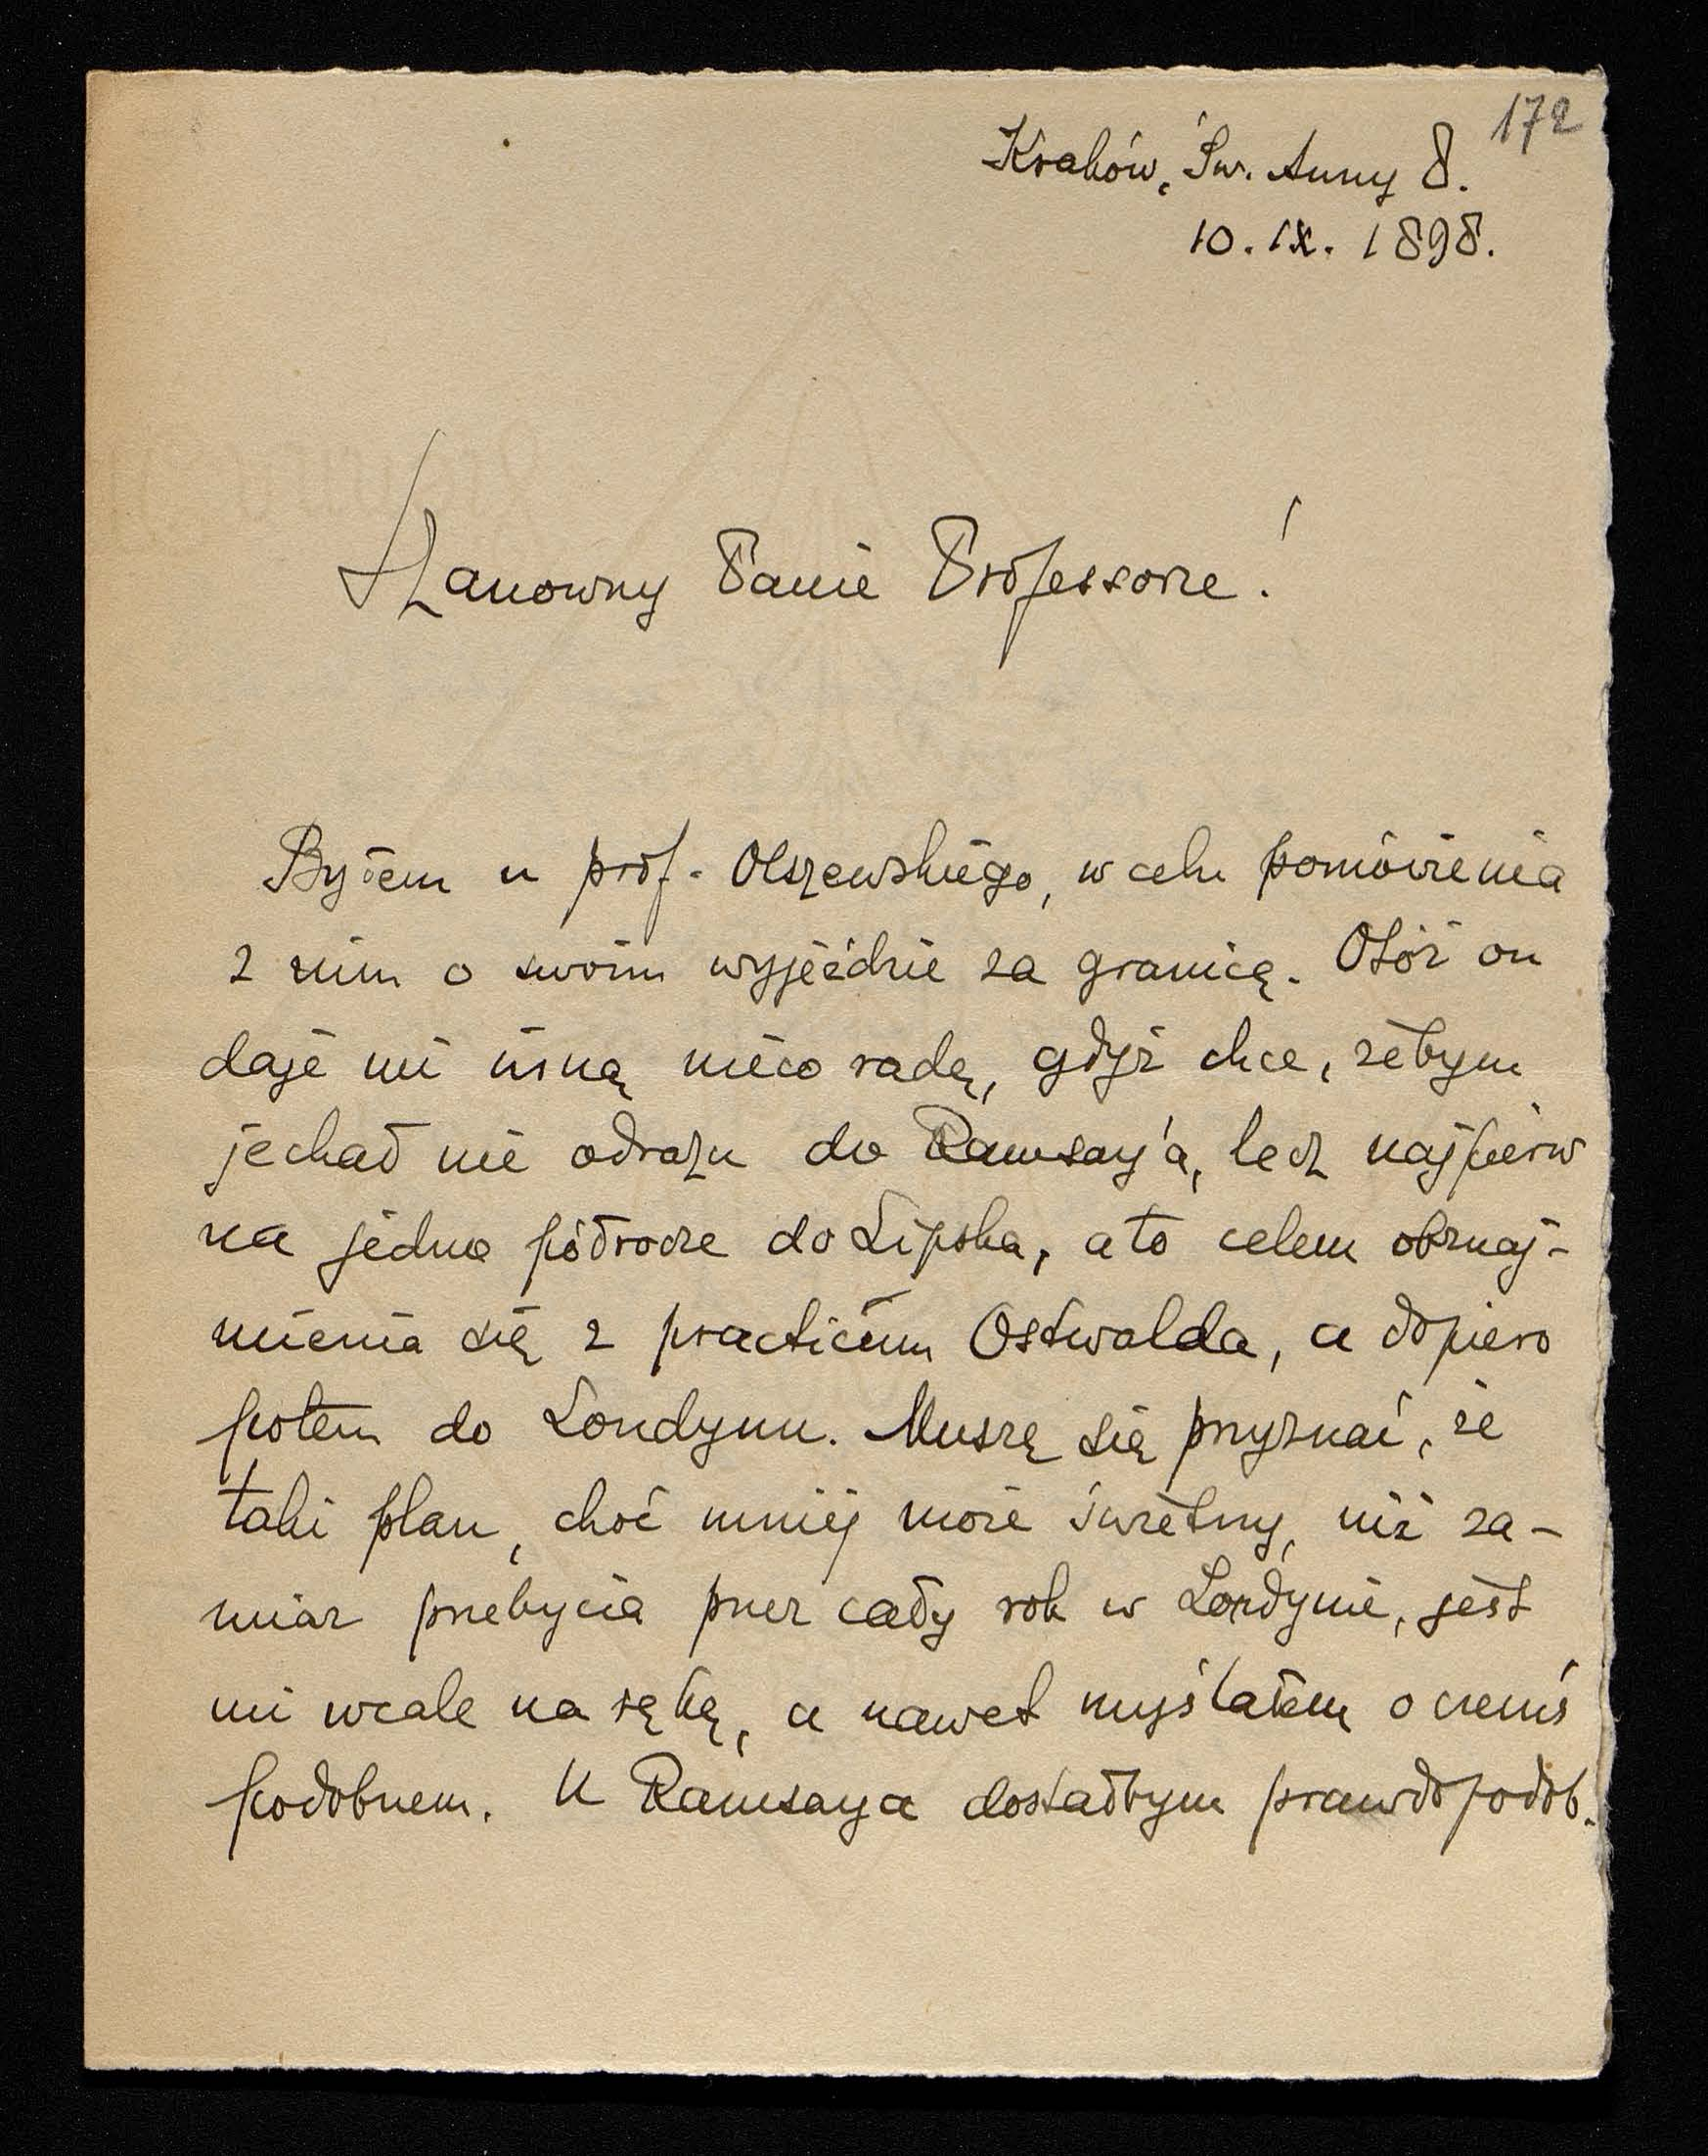 172
Kraków, Św. Anny 8.
10. IX. 1898.
Szanowny Panie Professorze!
Byłem u prof. Olszewskiego, w celu pomówienia
z nim o swoim wyjeździe za granicę. Otóż on
daje mi inną nieco radę, gdyż chce, żebym
jechał nie odrazu do Ramsay'a, lecz najpierw
na jedno półrocze do Lipska, a to celem obznaj-
mienia się z practicum Ostwalda, a dopiero
potem do Londynu. Muszę się przyznać, że
taki plan, choć mniej może świetny, niż za-
miar przebycia przez cały rok w Londynie, jest
mi wcale na rękę, a nawet myślałem o czemś
podobnem. U Ramsaya dostałbym prawdopodob.